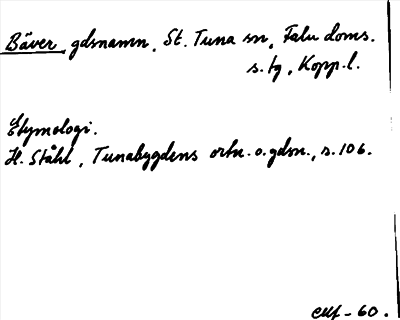 Bäver, gdsnamn, St. Tuna sn, Falu doms.
s. tg, Kopp. l.
Etymologi.
H. Ståhl, Tunabygdens ortn. o. gdsn., s. 106.
- 60.